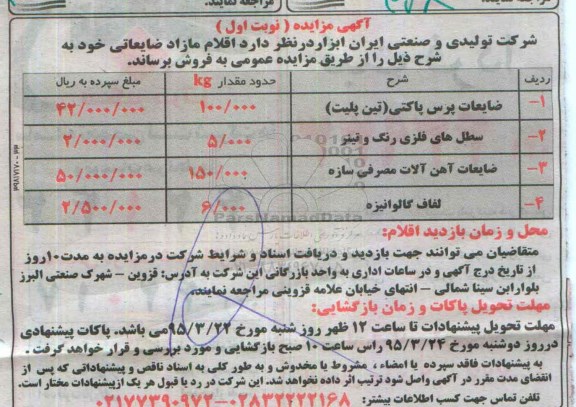 آگهی مزایده ( نوبت اول )
شرکت تولیدی و صنعتی ایران ابزاردرنظر دارد اقلام مازاد ضایعاتی خود به
شرح ذیل را از طریق مزایده عمومی به فروش برساند.
ردیف شرح حدود مقدار kg مبلغ سپرده به ریال
۱- ضایعات پرس پاکتی(تین پلیت) ۱۰۰/۰۰۰ ۴۲/۰۰۰/۰۰۰
۲- سطل های فلزی رنگ و تینر ۵/۰۰۰ ۲/۰۰۰/۰۰۰
۳- ضایعات آهن آلات مصرفی سازه ۱۵۰/۰۰۰ ۵۰/۰۰۰/۰۰۰
۴- لفاف گالوانیزه ۶/۰۰۰ ۲/۵۰۰/۰۰۰
ParsNamadData
محل و زمان بازدید اقلام:
متقاضیان می توانند جهت بازدید و دریافت اسناد و شرایط شرکت درمزایده به مدت۱۰روز
از تاریخ درج آگهی و در ساعات اداری به واحد بازرگانی این شرکت به آدرس: قزوین – شهرک صنعتی البرز
بلوارابن سینا شمالی – انتهای خیابان علامه قزوینی مراجعه نمایند.
مهلت تحویل پاکات و زمان بازگشایی:
مهلت تحویل پیشنهادات تا ساعت ۱۲ ظهر روز شنبه مورخ ۹۵/۳/۲۲می باشد. پاکات پیشنهادی
درروز دوشنبه مورخ ۹۵/۳/۲۴ راس ساعت ۱۰ صبح بازگشایی و مورد بررسی و قرار خواهد گرفت .
به پیشنهادات فاقد سپرده یا امضاء ، مشروط یا مخدوش و به طور کلی به اسناد ناقص و پیشنهاداتی که پس از
انقضای مدت مقرر در آگهی واصل شود ترتیب اثر داده نخواهد شد. این شرکت در رد یا قبول هر یک ازپیشنهادات مختار است.
تلفن تماس جهت کسب اطلاعات بیشتر: ۰۲۸۳۲۲۲۲۱۶۸-۰۲۱۷۷۳۹۰۹۷۲